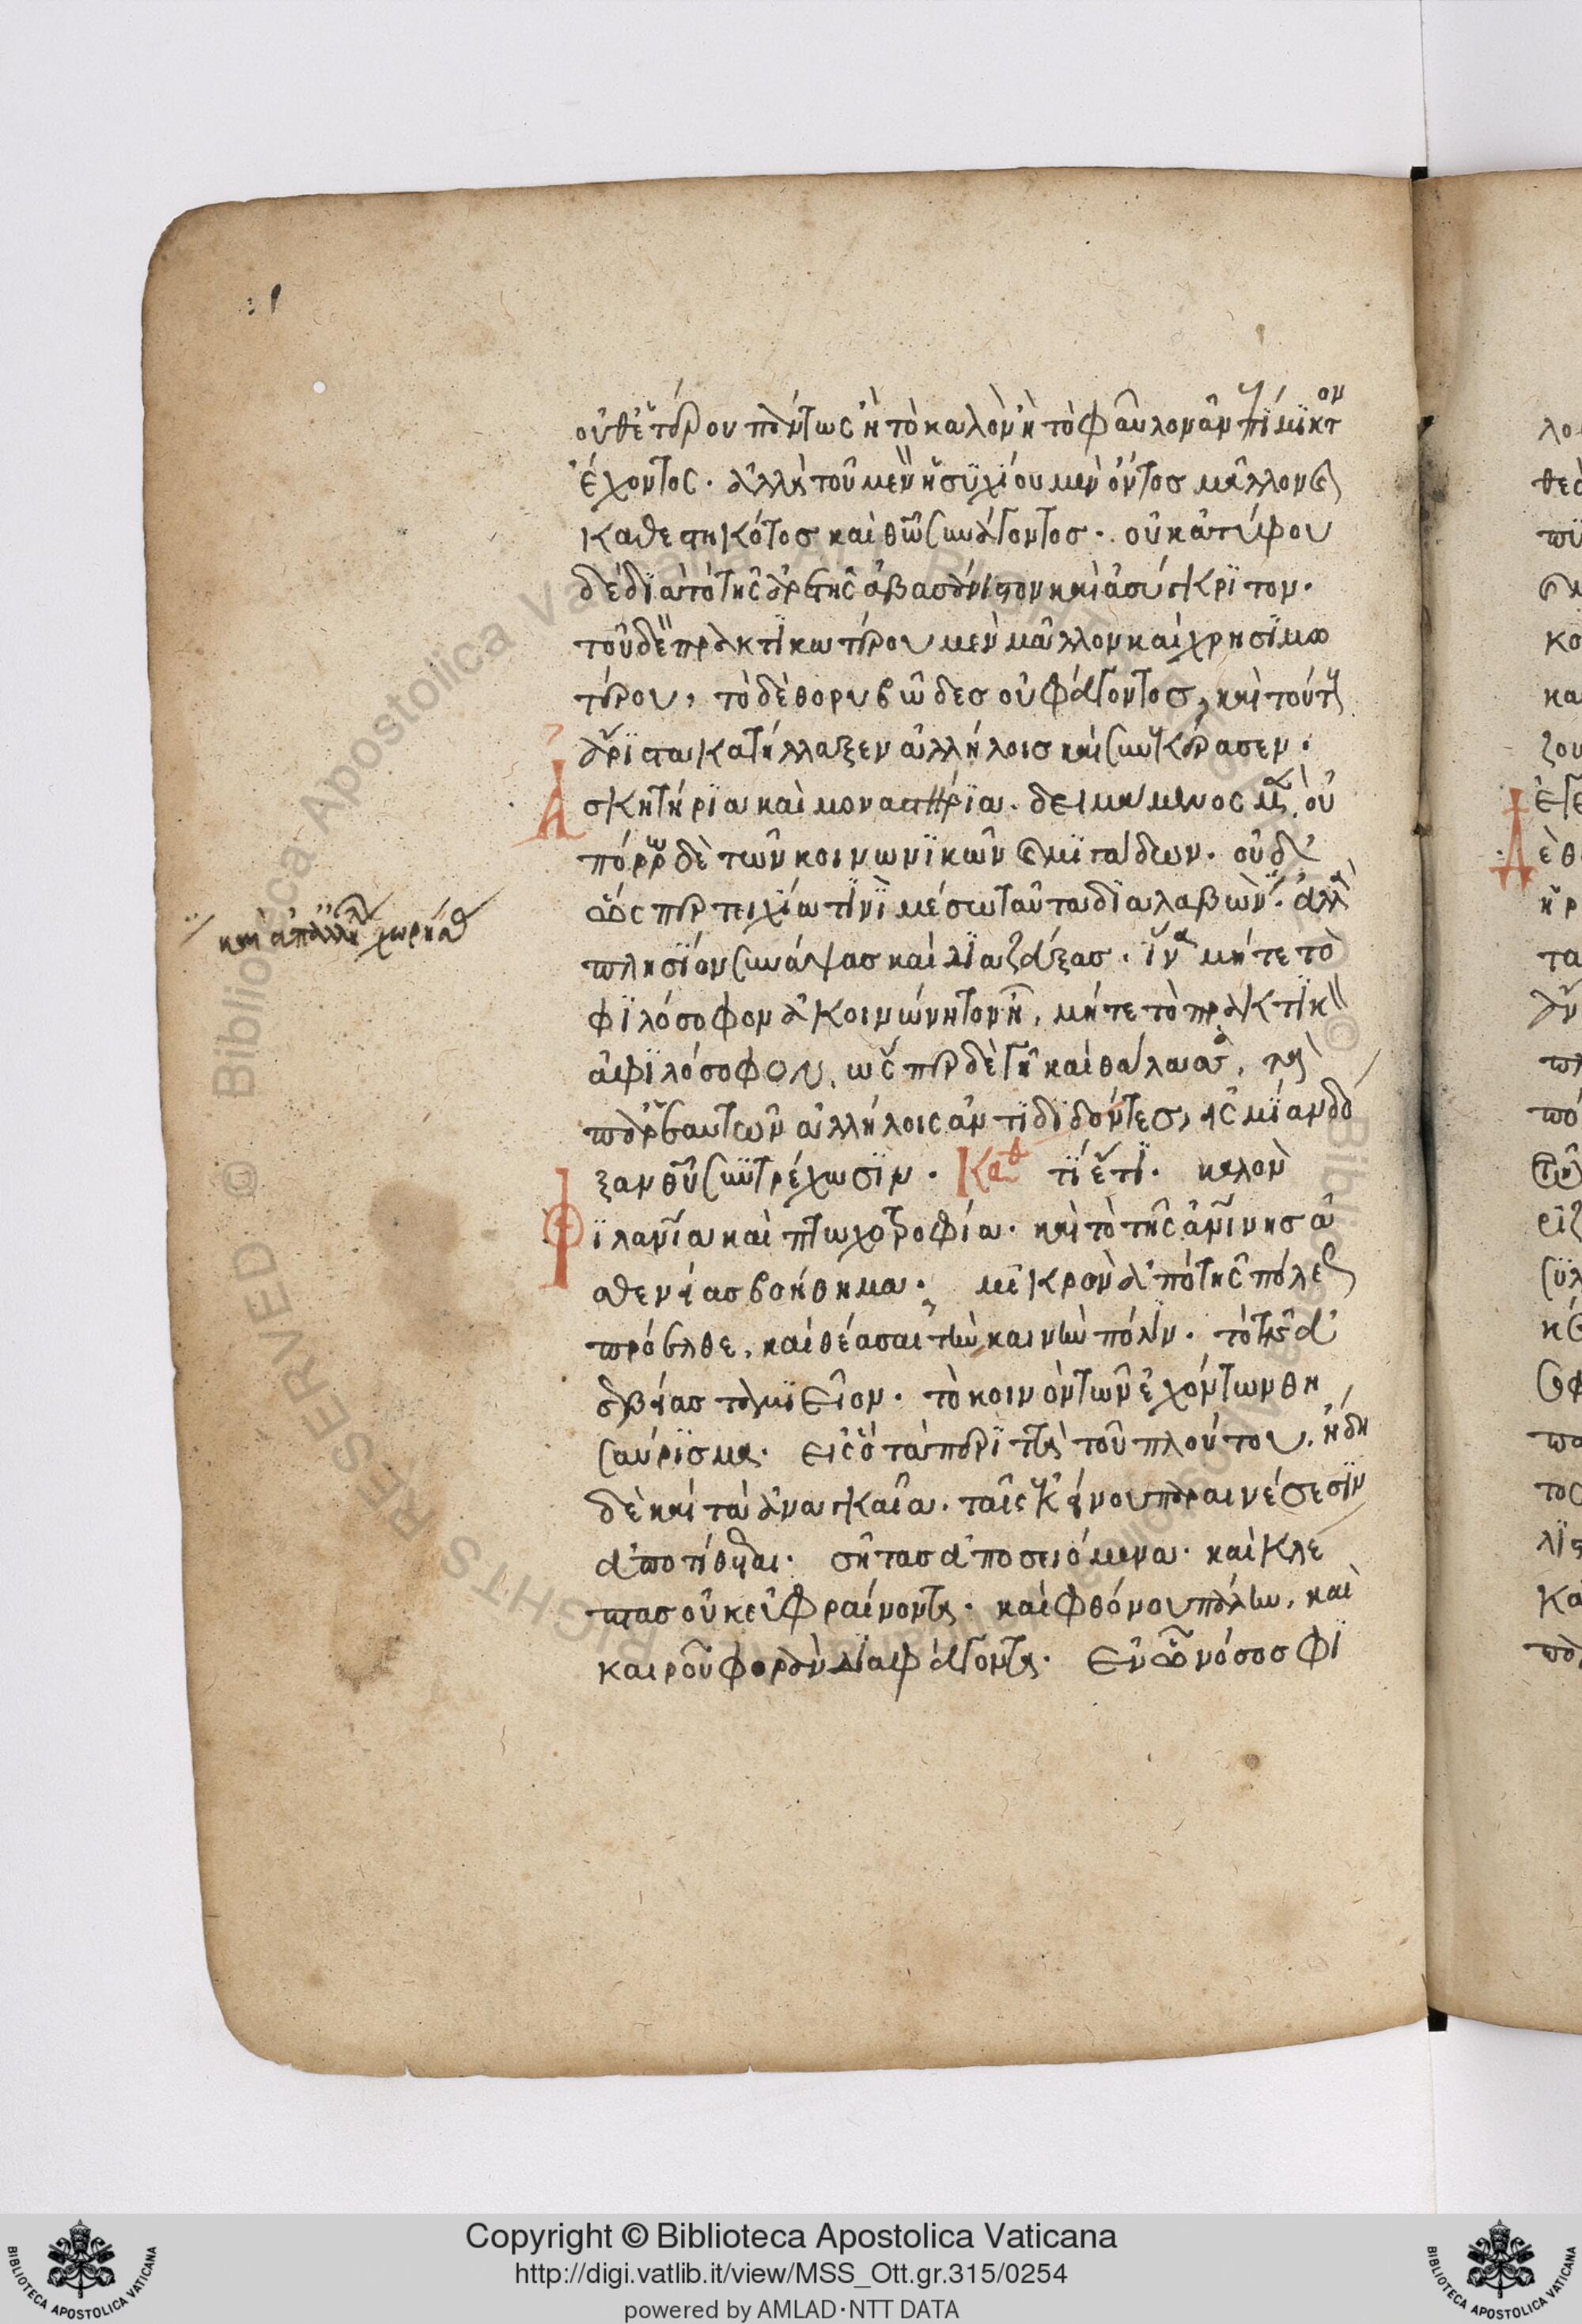 οὐθετέρου πάντως ἢ τὸ καλὸν ἢ τὸ φαῦλον ἀντίμικτον
ἔχοντος. ἀλλὰ τοῦ μὲν ἡσυχίου μὲν ὄντος μᾶλλον καὶ
καθεστηκότος καὶ θῶ συνάγοντος. οὐκ ἄτυφου
δὲ διὰ τὸ τῆς ἀρετῆς ἀβασάνιστον καὶ ἀσύγκριτον.
τοῦ δὲ πρακτικωτέρου μὲν μᾶλλον καὶ χρησιμω
τέρου, τὸ δὲ θορυβῶδες οὐ φεύγοντος, καὶ τούτους
ἄριστα κατήλλαξεν ἀλλήλοις καὶ συνεκέρασεν.
Ἀσκητήρια καὶ μοναστήρια. δειμάμενος μὲν, οὐ
πόρρω δὲ τῶν κοινωνικῶν καὶ μιγάδων. οὐδὲ
ὥσπερ τειχίω τινὶ μέσω ταῦτα διαλαβὼν. ἀλλὰ
πλησίον συνάψας καὶ διαζεύξας. ἵνα μήτε τὸ
φιλόσοφον ἀκοινώνητον ἦ, μήτε τὸ πρακτικὸν
ἀφιλόσοφον, ὥσπερ δὲ γῆ καὶ θάλασσα, τὰ
παρ' ἑαυτῶν ἀλλήλοις ἀντιδιδόντες, εἰς μίαν δό
ξαν θῦ συντρέχωσιν. τί ἔτι. καλὸν
Φιλανία καὶ πτωχοτροφία. καὶ τὸ τῆς ἀνίνης ἀ
σθενείας βοήθημα. μικρὸν ἀπὸ τῆς πόλεως
πρόελθε, καὶ θέασαι τὴν καινὴν πόλιν. τὸ τῆς εὐ
σεβείας ταμιεῖον. τὸ κοινὸν τῶν ἐχόντων θη
σαύρισμα. εἰς ὃ τὰ περιττὰ τοῦ πλούτου, ἤδη
δὲ καὶ τὰ ἀναγκαῖα. ταῖς ἐκείνου παραινέσεσιν
ἀποτίθεται. σῆτας ἀποσειόμενα. καὶ κλέ
πτας οὐκ εὐφραίνοντα. καὶ φθόνου πάλην, καὶ
καιροῦ φορὰν διαφεύγοντα. Ἐν ὧ νόσος φι